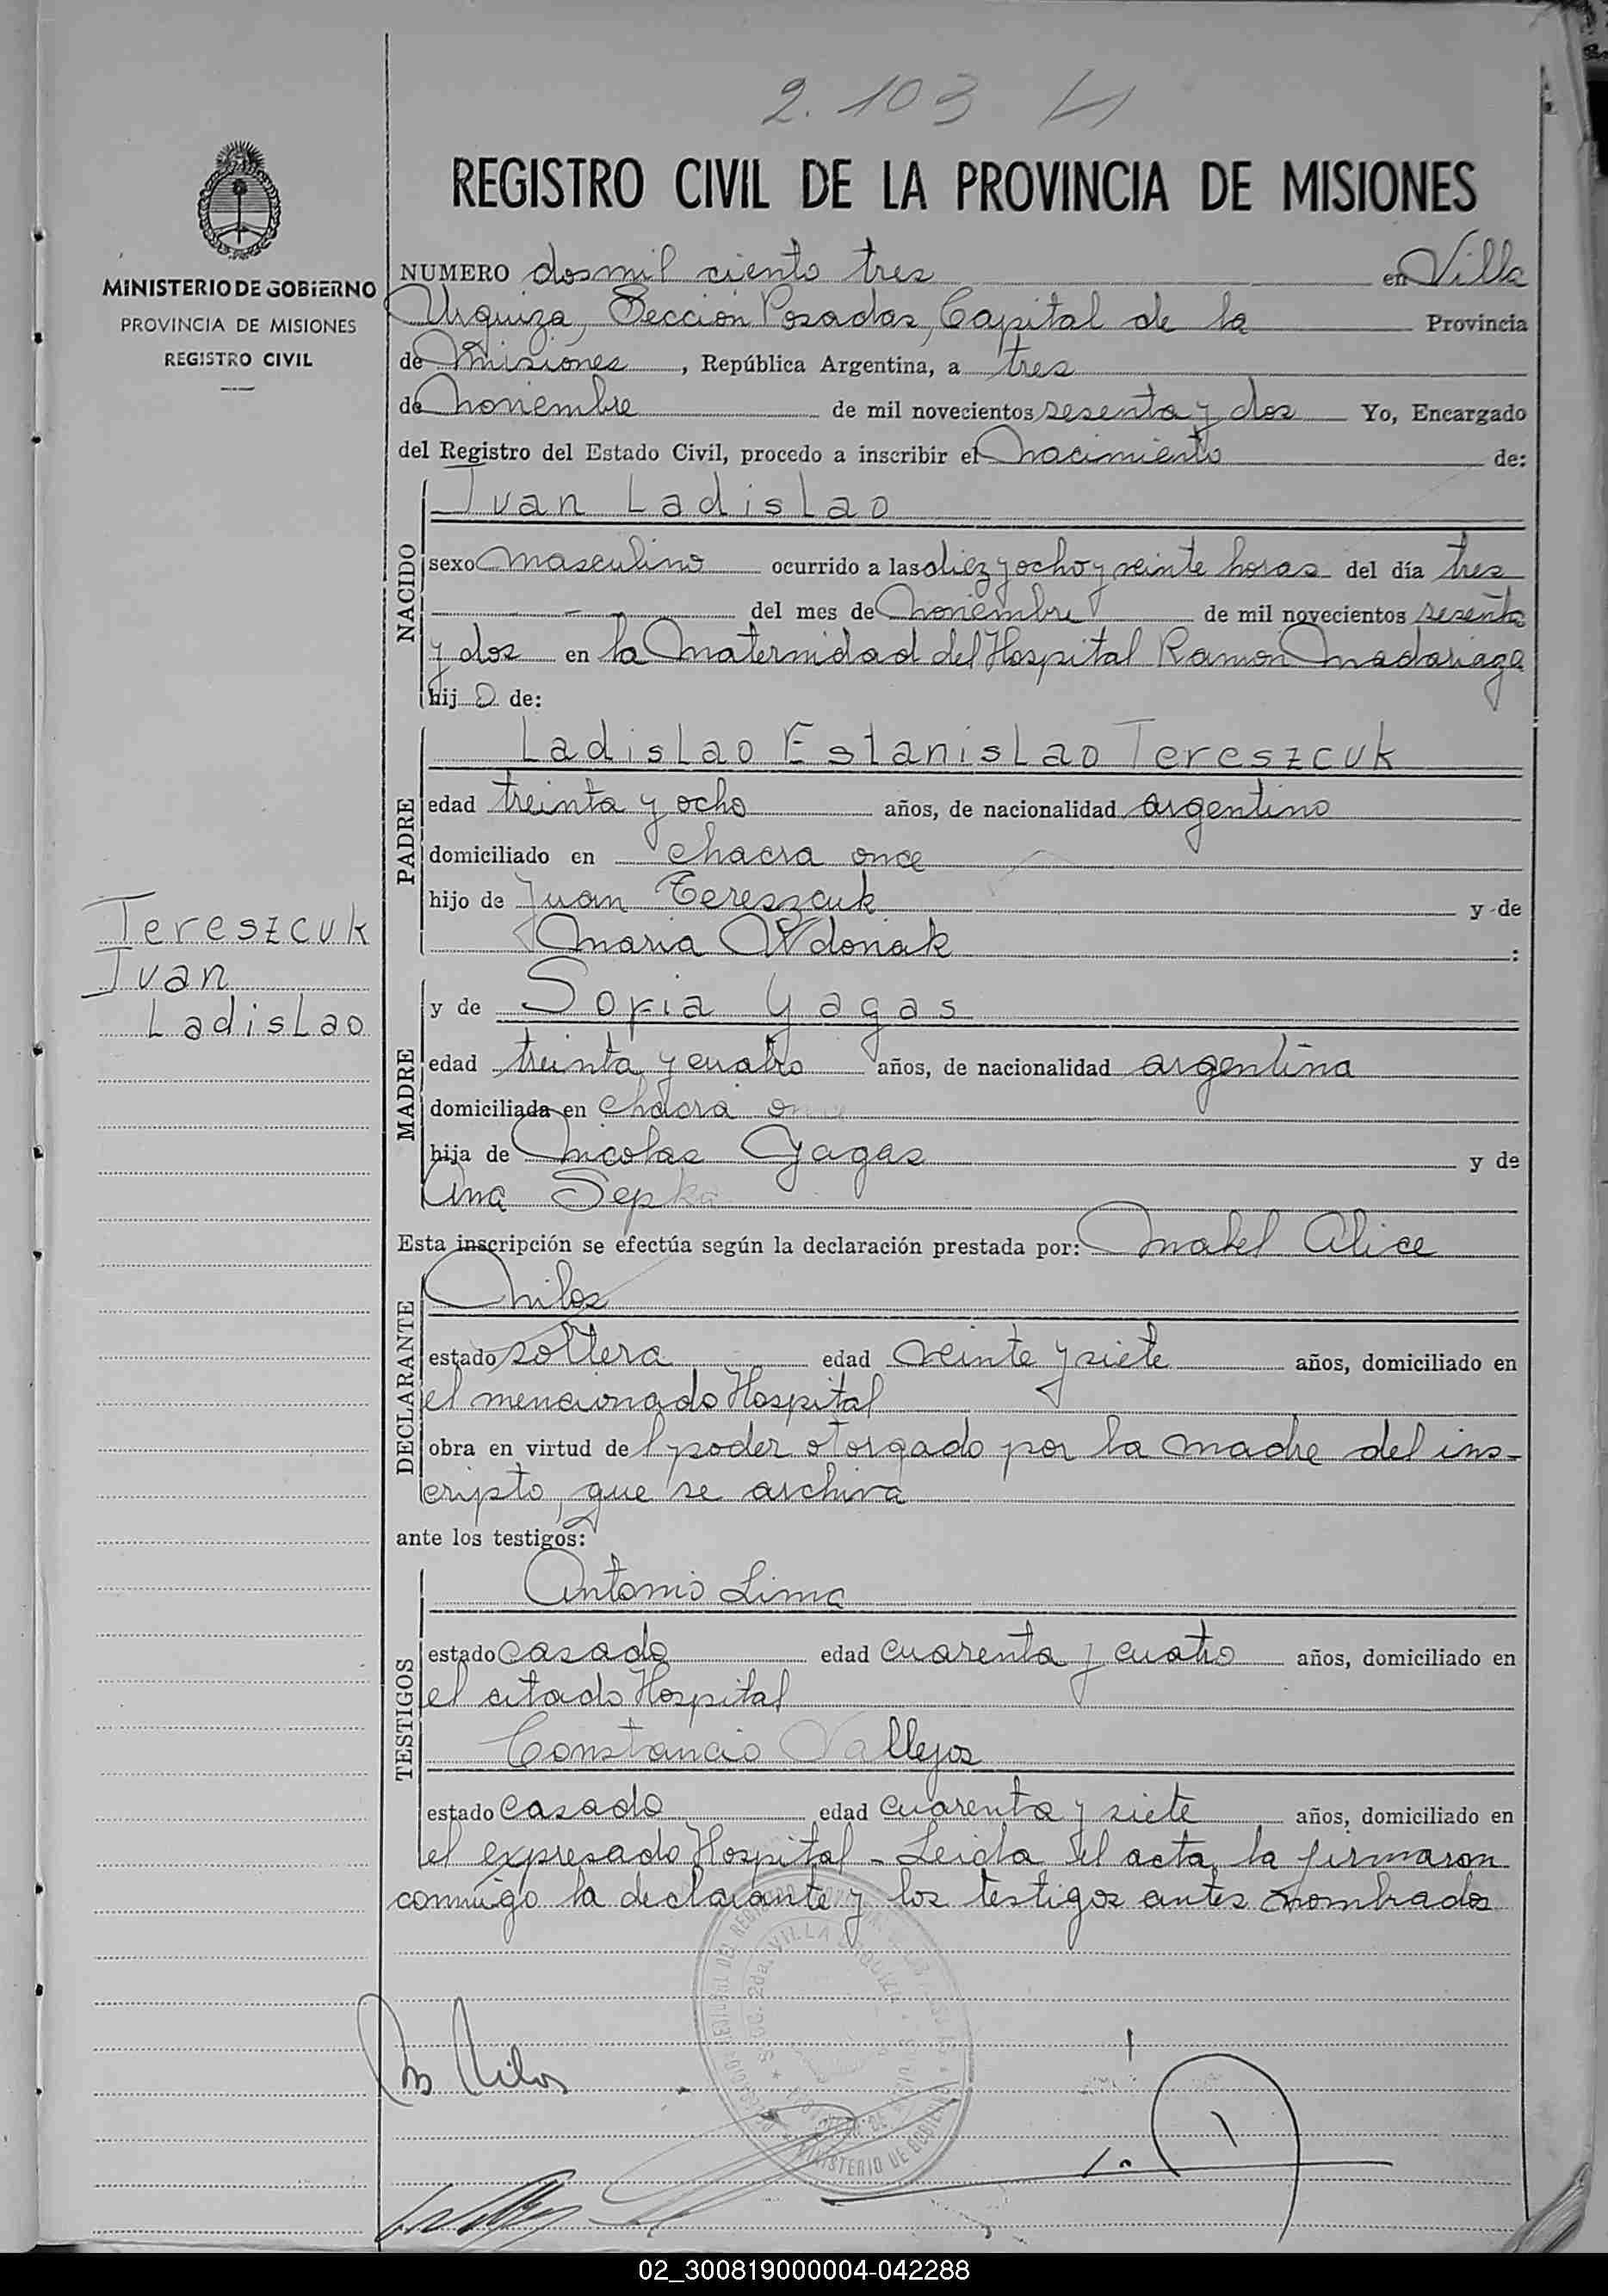 2.103
REGISTRO CIVIL DE LA PROVINCIA DE MISIONES
MINISTERIO DE GOBIERNO
PROVINCIA DE MISIONES
REGISTRO CIVIL
NUMERO dosmil ciento tres en Villa
Urquiza, Sección Posadas, Capital de la Provincia
de Misiones, República Argentina, a tres
de noviembre de mil novecientos sesenta y dos Yo, Encargado
del Registro del Estado Civil, procedo a inscribir el nacimiento de:
NACIDO
Ivan Ladislao
sexo masculino ocurrido a las diez y ocho y veinte horas del día tres
del mes de noviembre de mil novecientos sesenta
y dos en la Maternidad del Hospital Ramon Madariaga
hijo de:
PADRE
Ladislao Estanislao Tereszcuk
edad treinta y ocho años, de nacionalidad argentino
domiciliado en chacra once
hijo de Juan Tereszcuk y de
Maria Wdoviak :
Tereszcuk
Ivan
Ladislao
MADRE
y de Sofia Yagas
edad treinta y cuatro años, de nacionalidad argentina
domiciliada en chacra once
hija de Nicolas Yagas y de
Ana Sepka
Esta inscripción se efectúa según la declaración prestada por: Mabel Alice
DECLARANTE
Milos
estado soltera edad veinte y siete años, domiciliado en
el mencionado Hospital
obra en virtud del poder otorgado por la madre del ins-
cripto, que se archiva
ante los testigos:
TESTIGOS
Antonio Lima
estado casado edad cuarenta y cuatro años, domiciliado en
el citado Hospital
Constancio Vallejos
estado casado edad cuarenta y siete años, domiciliado en
el expresado Hospital - Leida el acta, la firmaron
conmigo la declarante y los testigos antes nombrados
VILLA URQUIZA
MINISTERIO DE GOBIERNO
M Milos
02_300819000004-042288